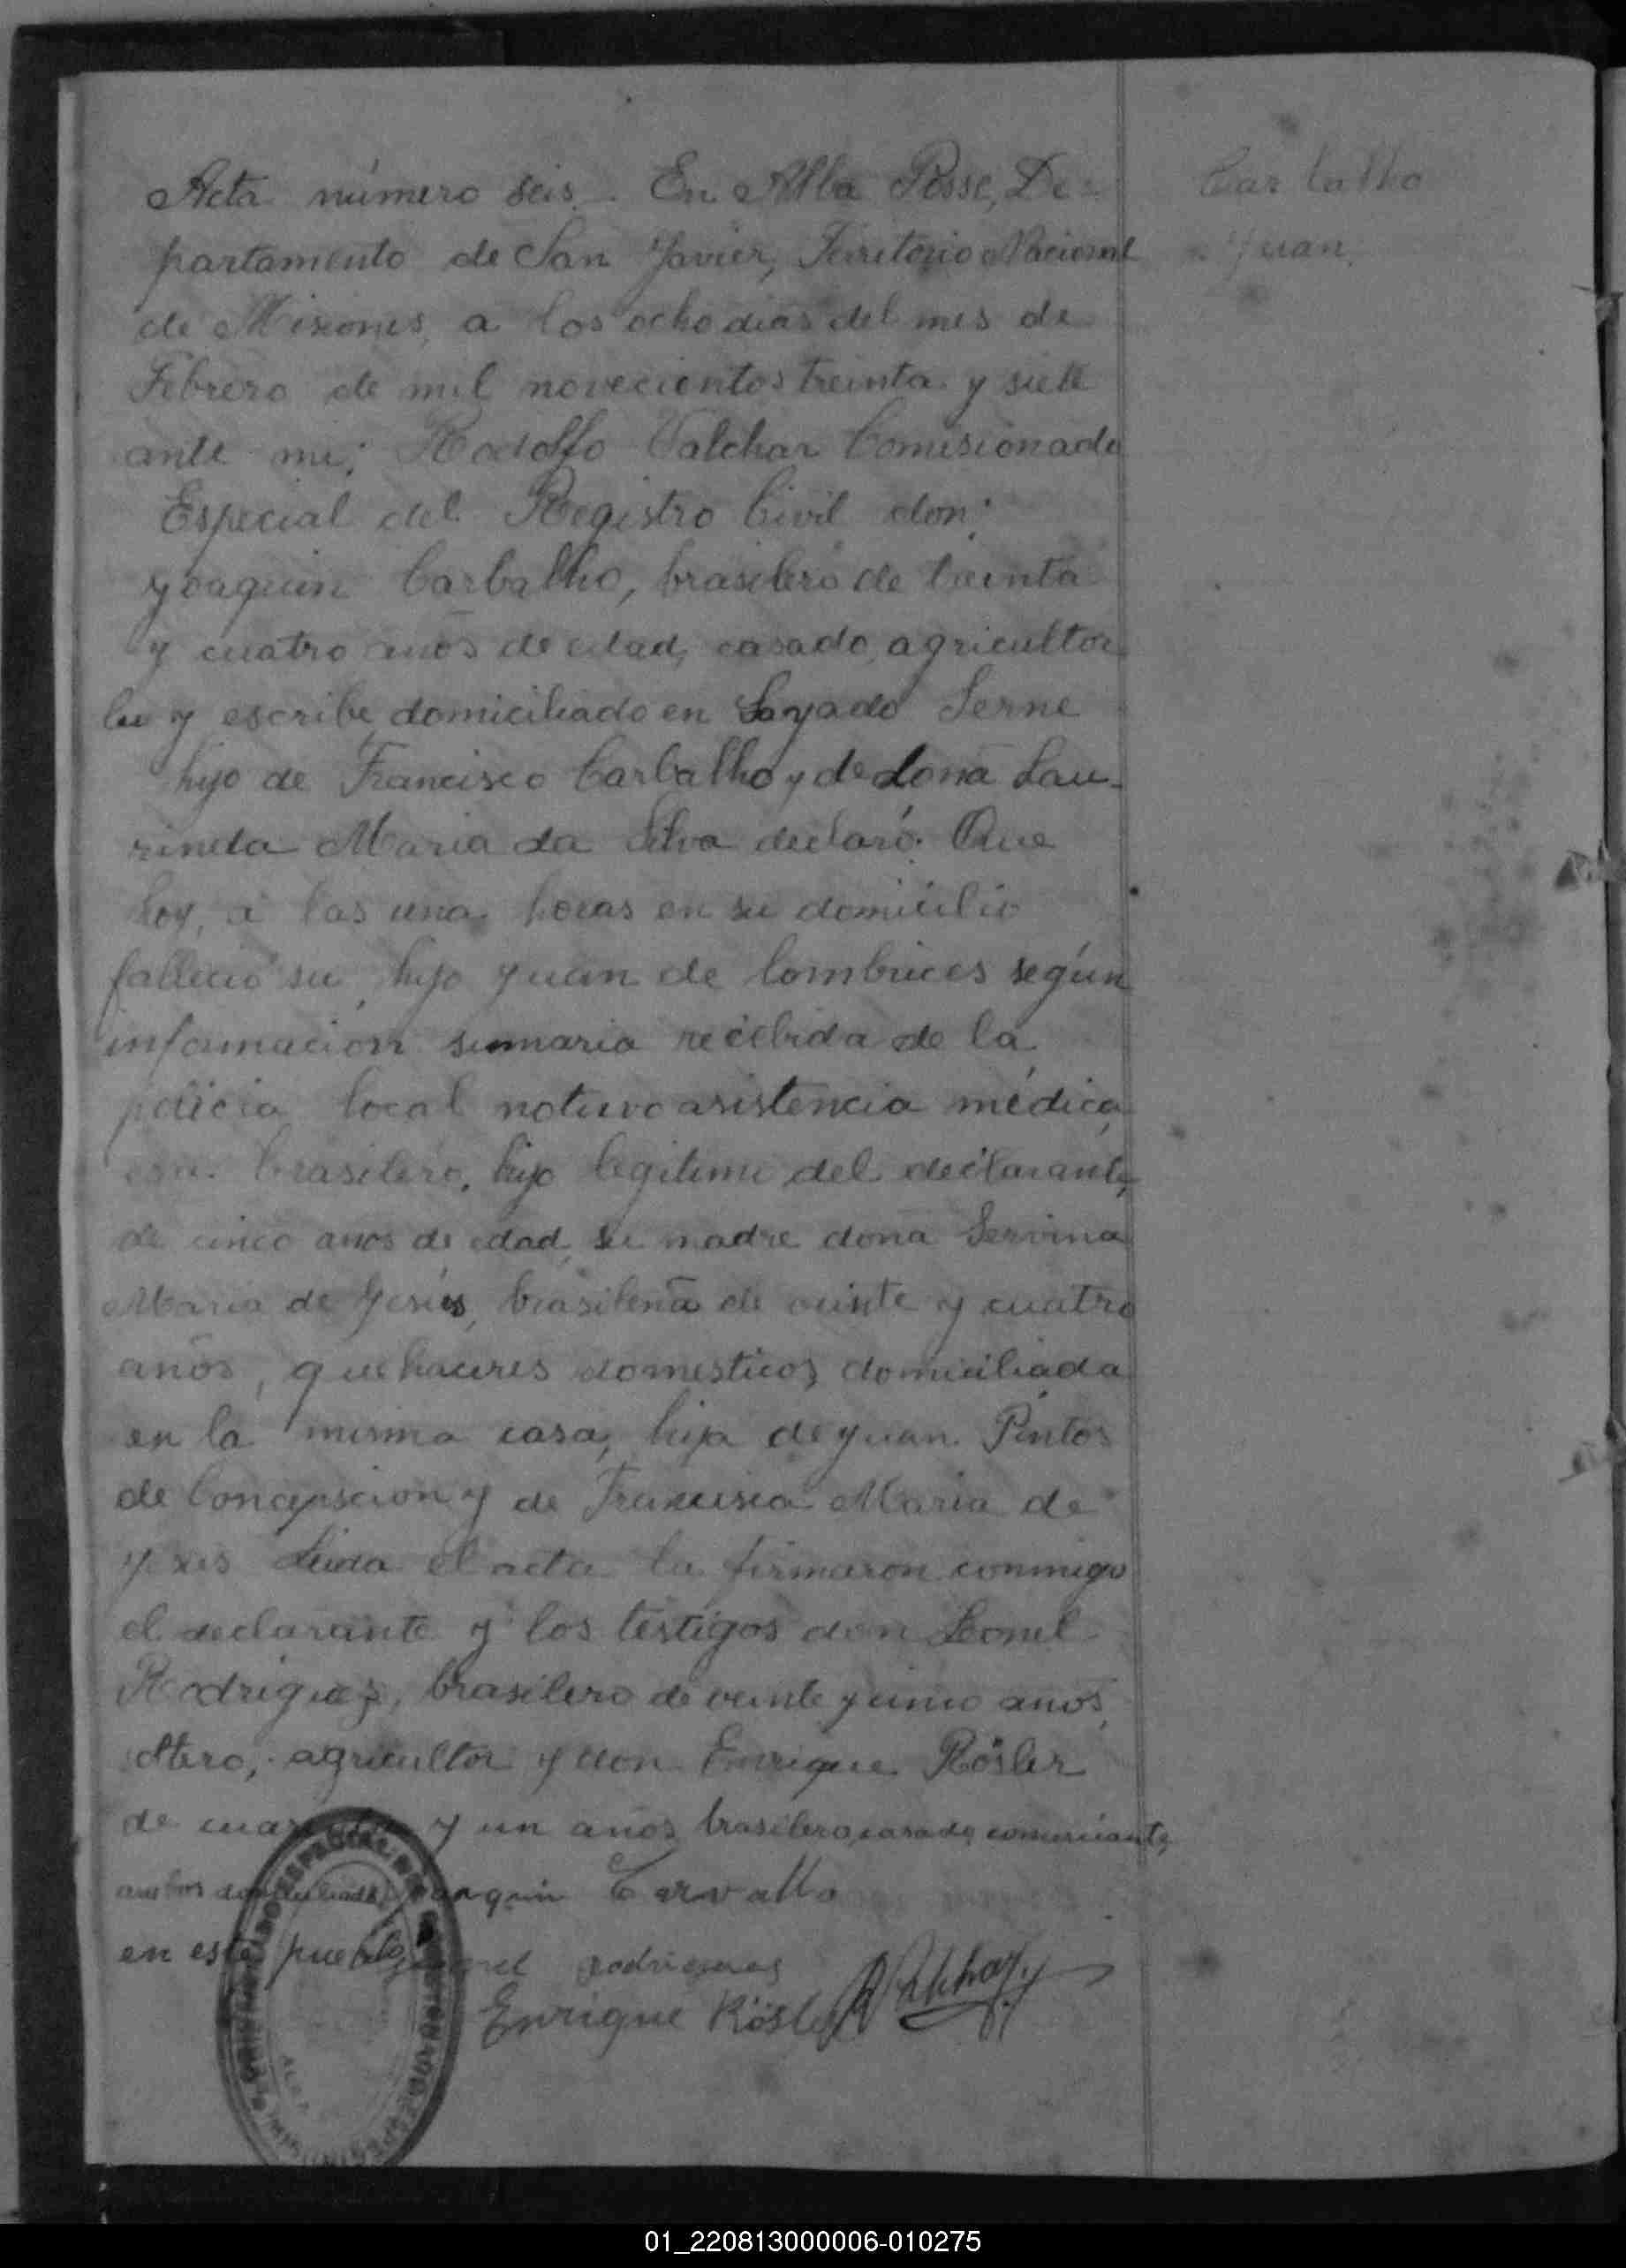 Acta número seis.- En Alba Posse, De-
partamento de San Javier, Territorio Nacional
de Misiones, a los ocho dias del mes de
Febrero de mil novecientos treinta y siete
ante mi; Rodolfo Valchar Comisionado
Especial del Registro Civil don:
Yoaquin Carbalho, brasilero de treinta
y cuatro años de edad, casado, agricultor
lee y escribe, domiciliado en Lagado Serne
hijo de Francisco Carbalho y de Dona Lau-
rinda Maria da Silva declaró: Que
hoy, a las una horas en su domicilio
fallecio su hijo Yuan de lombrices según
informacion sumaria recibida de la
policia local no tuvo asistencia médica,
era brasilero, hijo legitimo del declarante,
de cinco anos de edad, su madre dona Servina
Maria de Yesús, brasilena de veinte y cuatro
anos, quehaceres domesticos, domiciliada
en la misma casa, hija de Yuan Pintos
de Concepscion y de Francisca Maria de
Leida el acta la firmaron conmigo
el declarante y los testigos don Leonel
Rodriguez, brasilero de veinte y cinco anos,
soltero, agricultor y don Enrique Rösler
de y un anos, brasilero, casado, comerciante,
ambos Carvalho
en este pueblo
Enrique Rösler
Carbalho
Yuan.
01_220813000006-010275